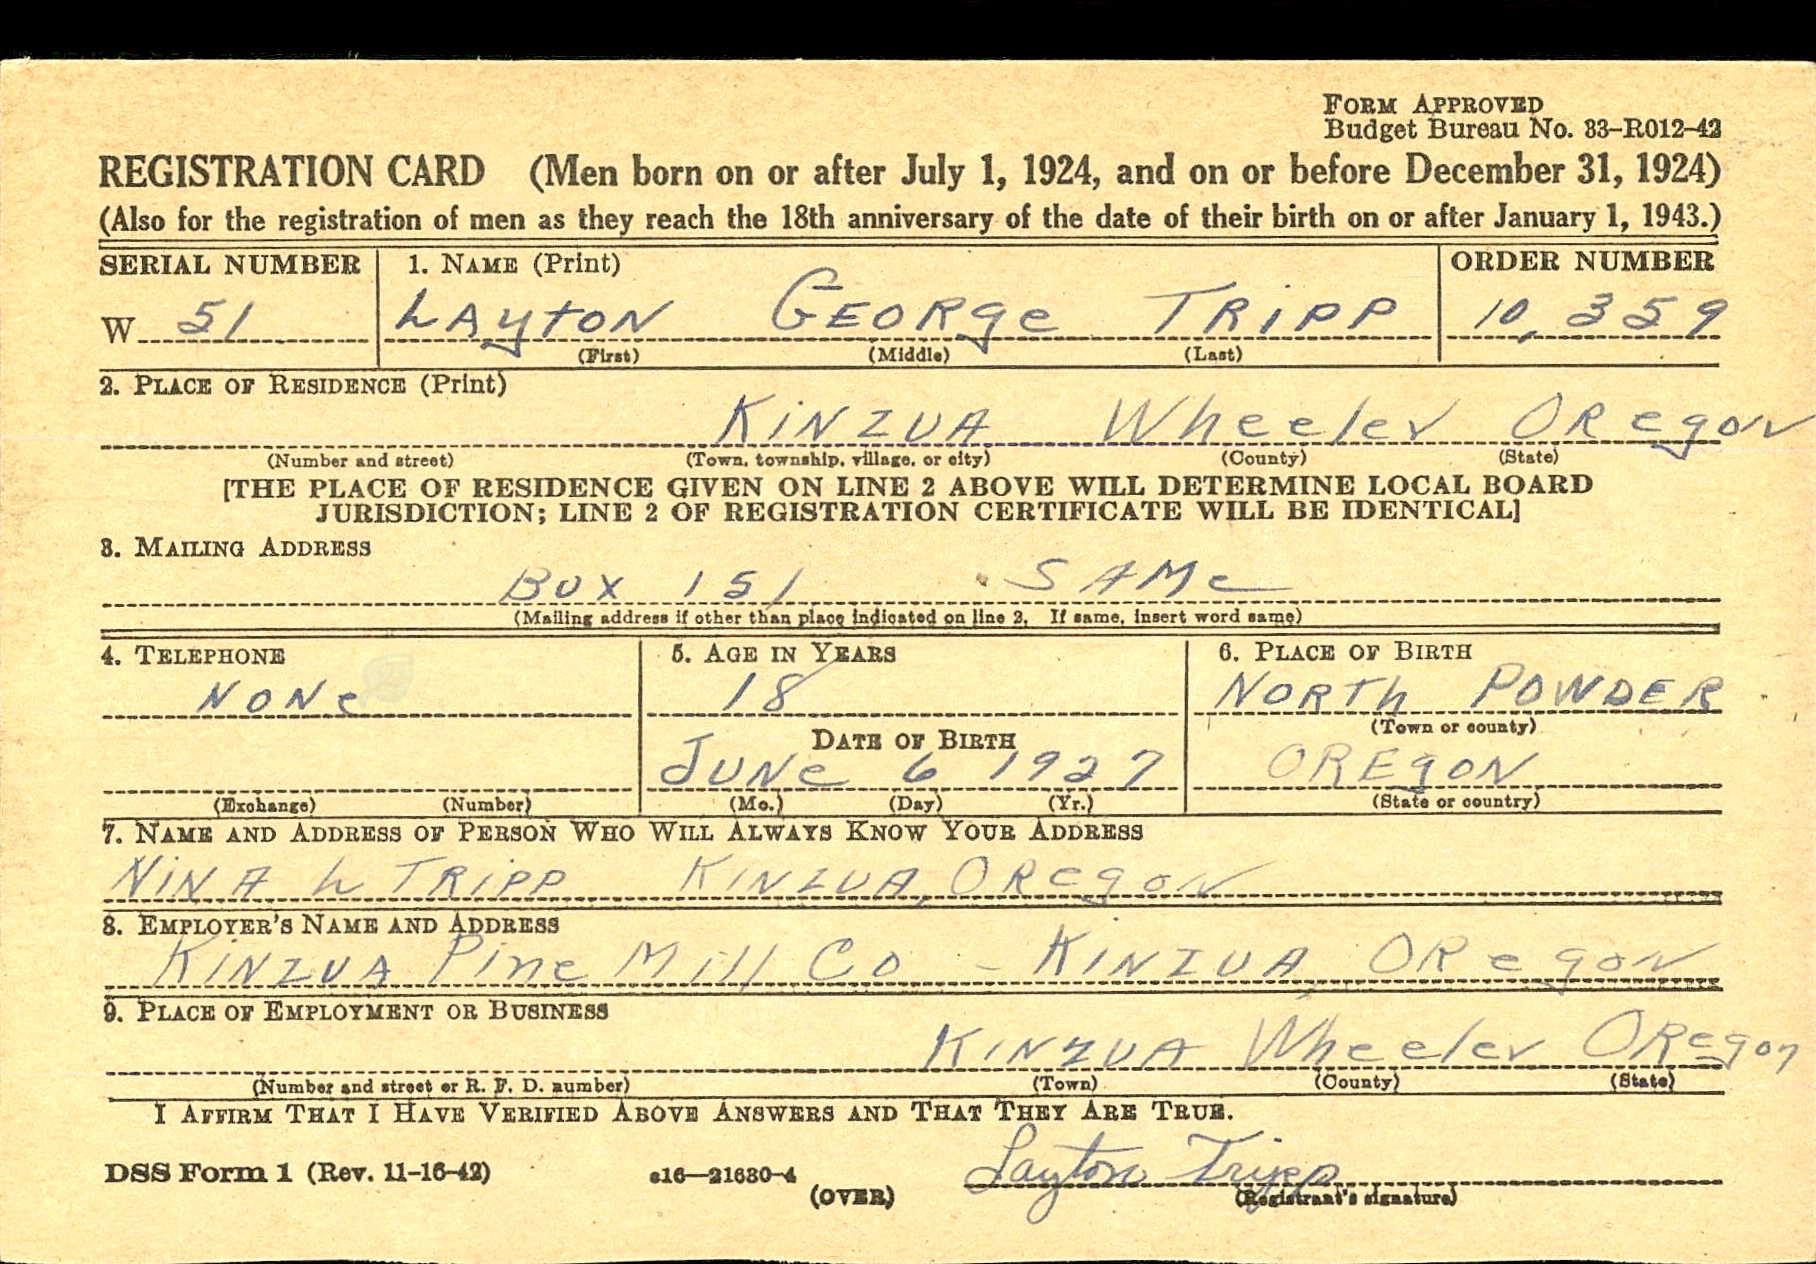 FORM APPROVED
Budget Bureau No. 33-R012-42
REGISTRATION CARD (Men born on or after July 1, 1924, and on or before December 31, 1924)
(Also for the registration of men as they reach the 18th anniversary of the date of their birth on or after January 1, 1943.)
SERIAL NUMBER 1. NAME (Print) ORDER NUMBER
W 51 LAyTON GEORge TRiPP 10,359
(First) (Middle) (Last)
2. PLACE OF RESIDENCE (Print)
KiNZUA Wheeler ORegon
(Number and street) (Town, township, village, or city) (County) (State)
[THE PLACE OF RESIDENCE GIVEN ON LINE 2 ABOVE WILL DETERMINE LOCAL BOARD
JURISDICTION; LINE 2 OF REGISTRATION CERTIFICATE WILL BE IDENTICAL]
3. MAILING ADDRESS
BOX 151 SAMe
(Mailing address if other than place indicated on line 2. If same, insert word same)
4. TELEPHONE 5. AGE IN YEARS 6. PLACE OF BIRTH
NONe 18 NORTh POWDER
(Town or county)
DATE OF BIRTH
JUNe 6 1927 OREgON
(Exchange) (Number) (Mo.) (Day) (Yr.) (State or country)
7. NAME AND ADDRESS OF PERSON WHO WILL ALWAYS KNOW YOUR ADDRESS
NiNA L TRiPP KINZUA, ORegoN
8. EMPLOYER'S NAME AND ADDRESS
KiNZUA Pine Mill CO - KINZUA, ORegon
9. PLACE OF EMPLOYMENT OR BUSINESS
KINZUA Wheeler ORegon
(Number and street or R. F. D. number) (Town) (County) (State)
I AFFIRM THAT I HAVE VERIFIED ABOVE ANSWERS AND THAT THEY ARE TRUE.
DSS Form 1 (Rev. 11-16-42) c16—21630-4 Layton Tripp
(OVER) (Registrant's signature)